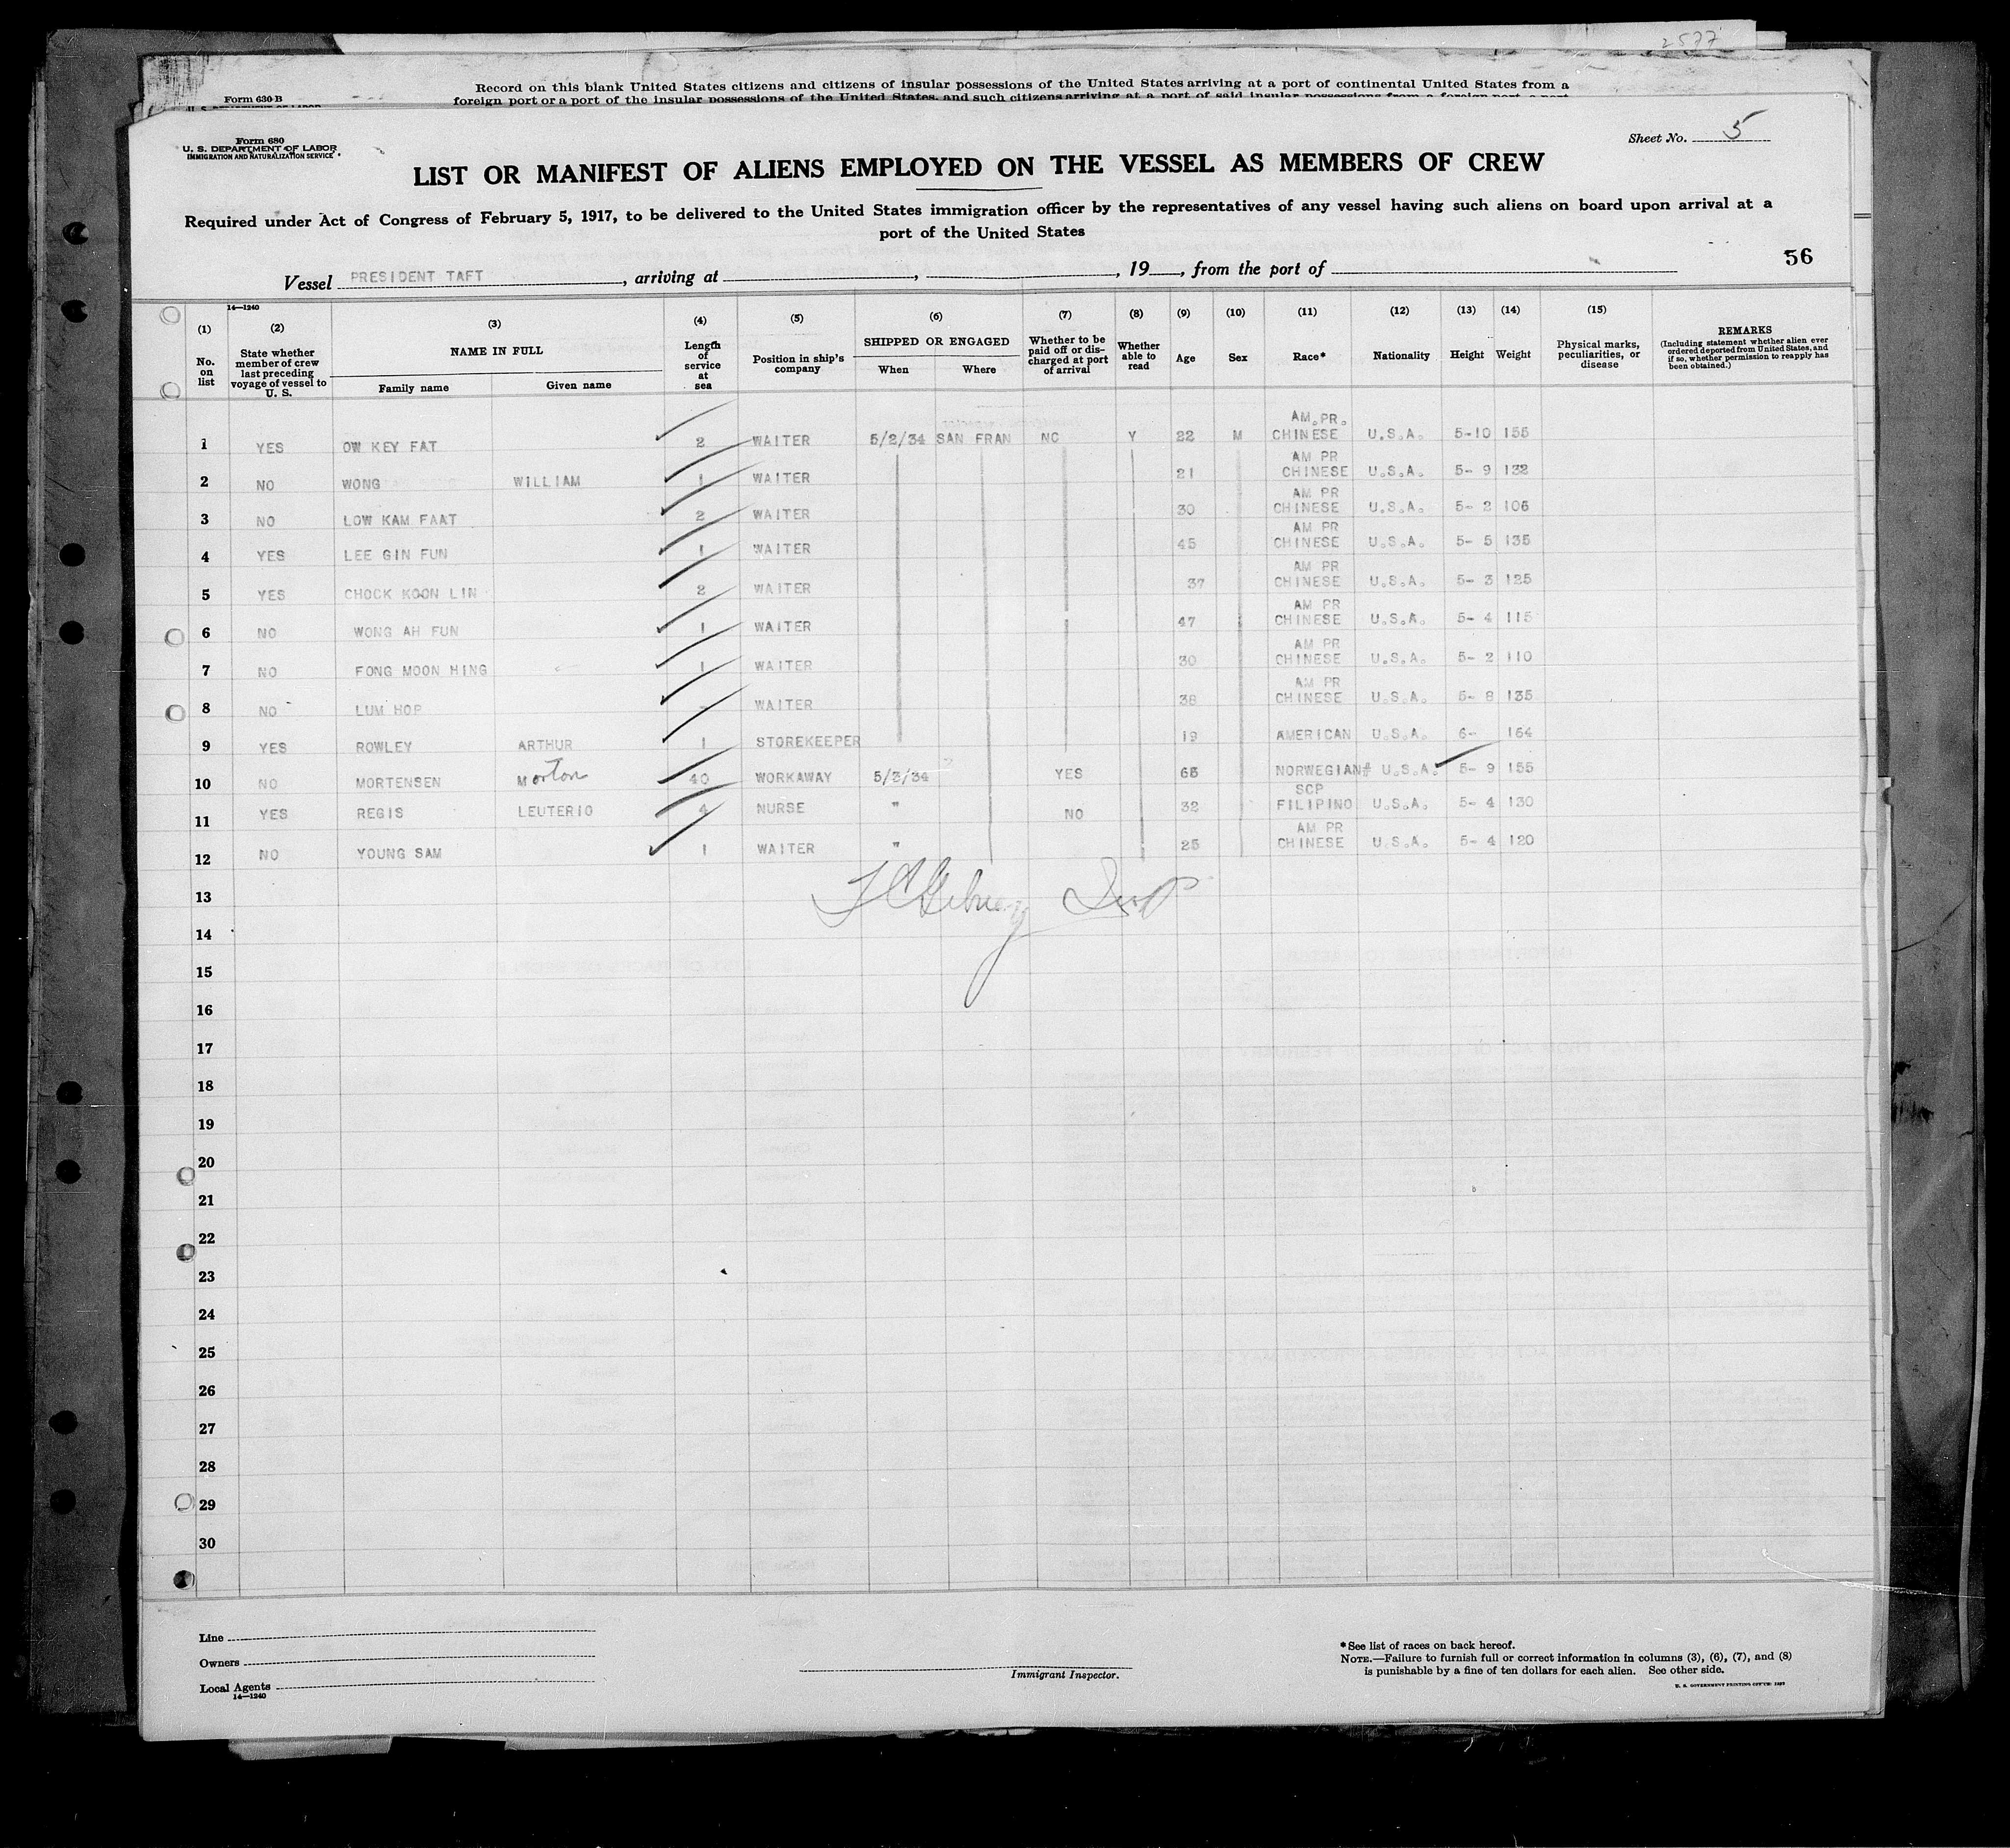 2577
Form 630 B
Record on this blank United States citizens and citizens of insular possessions of the United States arriving at a port of continental United States from a
foreign port or a port of the insular possessions of the United States, and such citizens arriving at a port of said insular possessions from a foreign port, a port
Form 680
U. S. DEPARTMENT OF LABOR
IMMIGRATION AND NATURALIZATION SERVICE
Sheet No. 5
LIST OR MANIFEST OF ALIENS EMPLOYED ON THE VESSEL AS MEMBERS OF CREW
Required under Act of Congress of February 5, 1917, to be delivered to the United States immigration officer by the representatives of any vessel having such aliens on board upon arrival at a
port of the United States
56
Vessel PRESIDENT TAFT, arriving at , , 19 , from the port of
14—1240
(1) (2) (3) (4) (5) (6) (7) (8) (9) (10) (11) (12) (13) (14) (15)
No. on list
State whether member of crew last preceding voyage of vessel to U. S.
NAME IN FULL
Family name Given name
Length of service at sea
Position in ship's company
SHIPPED OR ENGAGED
When Where
Whether to be paid off or discharged at port of arrival
Whether able to read
Age Sex Race* Nationality Height Weight
Physical marks, peculiarities, or disease
REMARKS
(Including statement whether alien ever ordered deported from United States, and if so, whether permission to reapply has been obtained.)
1 YES OW KEY FAT 2 WAITER 5/2/34 SAN FRAN NO Y 22 M AM.PR. CHINESE U.S.A. 5-10 155
2 NO WONG WILLIAM 1 WAITER 21 AM PR CHINESE U.S.A. 5- 9 132
3 NO LOW KAM FAAT 2 WAITER 30 AM PR CHINESE U.S.A. 5- 2 106
4 YES LEE GIN FUN 1 WAITER 45 AM PR CHINESE U.S.A. 5- 5 135
5 YES CHOCK KOON LIN 2 WAITER 37 AM PR CHINESE U.S.A. 5- 3 125
6 NO WONG AH FUN 1 WAITER 47 AM PR CHINESE U.S.A. 5- 4 115
7 NO FONG MOON HING 1 WAITER 30 AM PR CHINESE U.S.A. 5- 2 110
8 NO LUM HOP - WAITER 38 AM PR CHINESE U.S.A. 5- 8 135
9 YES ROWLEY ARTHUR 1 STOREKEEPER 19 AMERICAN U.S.A. 6- 164
10 NO MORTENSEN Morton 40 WORKAWAY 5/3/34 YES 65 NORWEGIAN# U.S.A. 5- 9 155
11 YES REGIS LEUTERIO 4 NURSE " NO 32 SCP FILIPINO U.S.A. 5- 4 130
12 NO YOUNG SAM 1 WAITER " 25 AM PR CHINESE U.S.A. 5- 4 120
13
14
15
16
17
18
19
20
21
22
23
24
25
26
27
28
29
30
Line
Owners
Local Agents
14—1240
Immigrant Inspector.
*See list of races on back hereof.
NOTE.—Failure to furnish full or correct information in columns (3), (6), (7), and (8)
is punishable by a fine of ten dollars for each alien. See other side.
U. S. GOVERNMENT PRINTING OFFICE: 1933